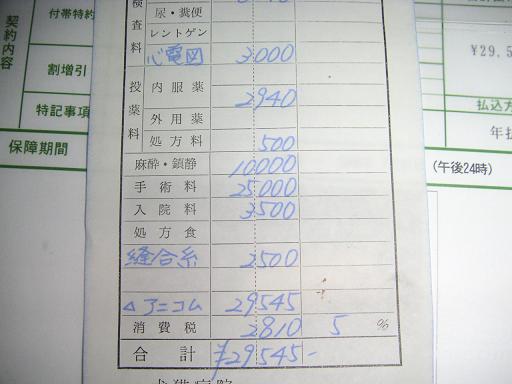 契約内容
付帯特約
割増引
特記事項
保障期間
検査料
尿・糞便
レントゲン
心電図 3000
投薬料
内服薬 2940
外用薬
処方料 500
麻酔・鎮静 10000
手術料 25000
入院料 3500
処方食
縫合糸 2500
△アニコム 29545
消費税 2810 5 %
合計 ¥29545-
¥29,5
払込方
年払
(午後24時)